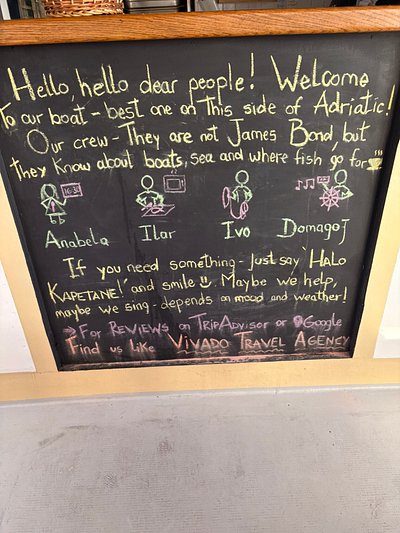 Hello, hello dear people! Welcome
to our boat - best one on this side of Adriatic!
Our crew - They are not James Bond, but
they know about boats, sea and where fish go for
Anabela Ilar Ivo Domagoj
If you need something - just say 'HALO
KAPETANE!' and smile Maybe we help,
maybe we sing - depends on mood and weather!
→ FOR REVIEWS on TRIPADVISOR or Google
Find us like VIVADO TRAVEL AGENCY